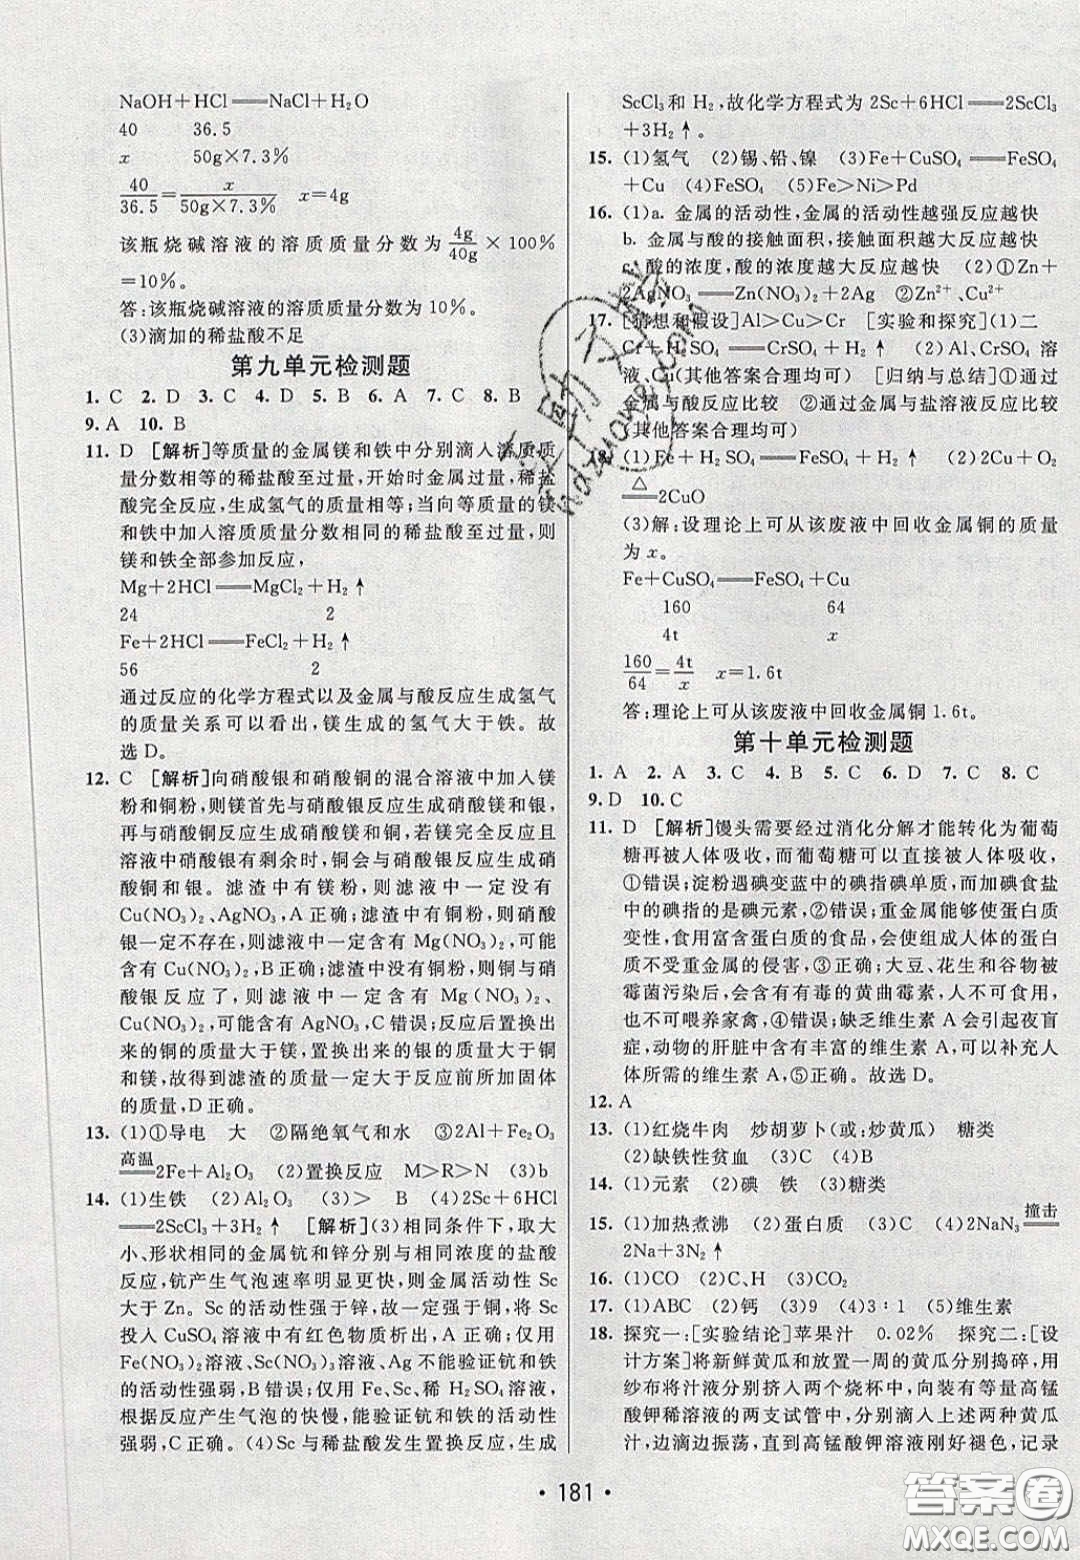 NaOH+HCl══NaCl+H₂O
40 36.5
x 50g×7.3%
40/36.5=x/50g×7.3% x=4g
该瓶烧碱溶液的溶质质量分数为4g/40g×100%
=10%。
答:该瓶烧碱溶液的溶质质量分数为10%。
(3)滴加的稀盐酸不足
第九单元检测题
1. C 2. D 3. C 4. D 5. B 6. A 7. C 8. B
9. A 10. B
11. D [解析]等质量的金属镁和铁中分别滴入溶质质
量分数相等的稀盐酸至过量,开始时金属过量,稀盐
酸完全反应,生成氢气的质量相等;当向等质量的镁
和铁中加入溶质质量分数相同的稀盐酸至过量,则
镁和铁全部参加反应,
Mg+2HCl══MgCl₂+H₂↑
24 2
Fe+2HCl══FeCl₂+H₂↑
56 2
通过反应的化学方程式以及金属与酸反应生成氢气
的质量关系可以看出,镁生成的氢气大于铁。故
选D。
12. C [解析]向硝酸银和硝酸铜的混合溶液中加入镁
粉和铜粉,则镁首先与硝酸银反应生成硝酸镁和银,
再与硝酸铜反应生成硝酸镁和铜,若镁完全反应且
溶液中硝酸银有剩余时,铜会与硝酸银反应生成硝
酸铜和银。滤渣中有镁粉,则滤液中一定没有
Cu(NO₃)₂、AgNO₃,A正确;滤渣中有铜粉,则硝酸
银一定不存在,则滤液中一定含有Mg(NO₃)₂,可能
含有Cu(NO₃)₂,B正确;滤渣中没有铜粉,则铜与硝
酸银反应了,则滤液中一定含有Mg(NO₃)₂、
Cu(NO₃)₂,可能含有AgNO₃,C错误;反应后置换出
来的铜的质量大于镁,置换出来的银的质量大于铜
和镁,故得到滤渣的质量一定大于反应前所加固体
的质量,D正确。
13. (1)①导电 大 ②隔绝氧气和水 ③2Al+Fe₂O₃
高温══2Fe+Al₂O₃ (2)置换反应 M>R>N (3)b
14. (1)生铁 (2)Al₂O₃ (3)> B (4)2Sc+6HCl
══2ScCl₃+3H₂↑ [解析](3)相同条件下,取大
小、形状相同的金属钪和锌分别与相同浓度的盐酸
反应,钪产生气泡速率明显更快,则金属活动性Sc
大于Zn。Sc的活动性强于锌,故一定强于铜,将Sc
投入CuSO₄溶液中有红色物质析出;仅用
Fe(NO₃)₂溶液、Sc(NO₃)₃溶液、Ag不能验证钪和铁
的活动性强弱,B错误;仅用Fe、Sc、稀H₂SO₄溶液,
根据反应产生气泡的快慢,能验证钪和铁的活动性
强弱,C正确。(4)Sc与稀盐酸发生置换反应,生成
ScCl₃和H₂,故化学方程式为2Sc+6HCl══2ScCl₃
+3H₂↑。
15. (1)氢气 (2)锡、铅、镍 (3)Fe+CuSO₄══FeSO₄
+Cu (4)FeSO₄ (5)Fe>Ni>Pd
16. (1)a. 金属的活动性,金属的活动性越强反应越快
b. 金属与酸的接触面积,接触面积越大反应越快
c. 酸的浓度,酸的浓度越大反应越快 (2)①Zn+
2AgNO₃══Zn(NO₃)₂+2Ag ②Zn²⁺、Cu²⁺
17. [猜想和假设]Al>Cu>Cr [实验和探究](1)二
Cr+H₂SO₄══CrSO₄+H₂↑ (2)Al、CrSO₄溶
液、Cu(其他答案合理均可) [归纳与总结]①通过
金属与酸反应比较 ②通过金属与盐溶液反应比较
(其他答案合理均可)
18. (1)Fe+H₂SO₄══FeSO₄+H₂↑ (2)2Cu+O₂
△══2CuO
(3)解:设理论上可从该废液中回收金属铜的质量
为x。
Fe+CuSO₄══FeSO₄+Cu
160 64
4t x
160/64=4t/x x=1.6t
答:理论上可从该废液中回收金属铜1.6t。
第十单元检测题
1. A 2. A 3. C 4. B 5. C 6. D 7. C 8. C
9. D 10. C
11. D [解析]馒头需要经过消化分解才能转化为葡萄
糖再被人体吸收,而葡萄糖可以直接被人体吸收,
①错误;淀粉遇碘变蓝中的碘指碘单质,而加碘食盐
中的碘指的是碘元素,②错误;重金属能够使蛋白质
变性,食用富含蛋白质的食品,会使组成人体的蛋白
质不受重金属的危害,③正确;大豆、花生和谷物被
霉菌污染后,会含有有毒的黄曲霉素,人不可食用,
也不可喂养家禽,④错误;缺乏维生素A会引起夜盲
症,动物的肝脏中含有丰富的维生素A,可以补充人
体所需的维生素A,⑤正确。故选D。
12. A
13. (1)红烧牛肉 炒胡萝卜(或:炒黄瓜) 糖类
(2)缺铁性贫血 (3)C (4)B
14. (1)元素 (2)碘 铁 (3)糖类
15. (1)加热煮沸 (2)蛋白质 (3)C (4)2NaN₃撞击══
2Na+3N₂↑
16. (1)CO (2)C、H (3)CO₂
17. (1)ABC (2)钙 (3)9 (4)3∶1 (5)维生素
18. 探究一:[实验结论]苹果汁 0.02% 探究二:[设
计方案]将新鲜黄瓜和放置一周的黄瓜分别捣碎,用
纱布将汁液分别挤入两个烧杯中,向装有等量高锰
酸钾稀溶液的两支试管中,分别滴入上述两种黄瓜
汁,边滴边振荡,直到高锰酸钾溶液刚好褪色,记录
• 181 •
答案圈
MXQE.COM